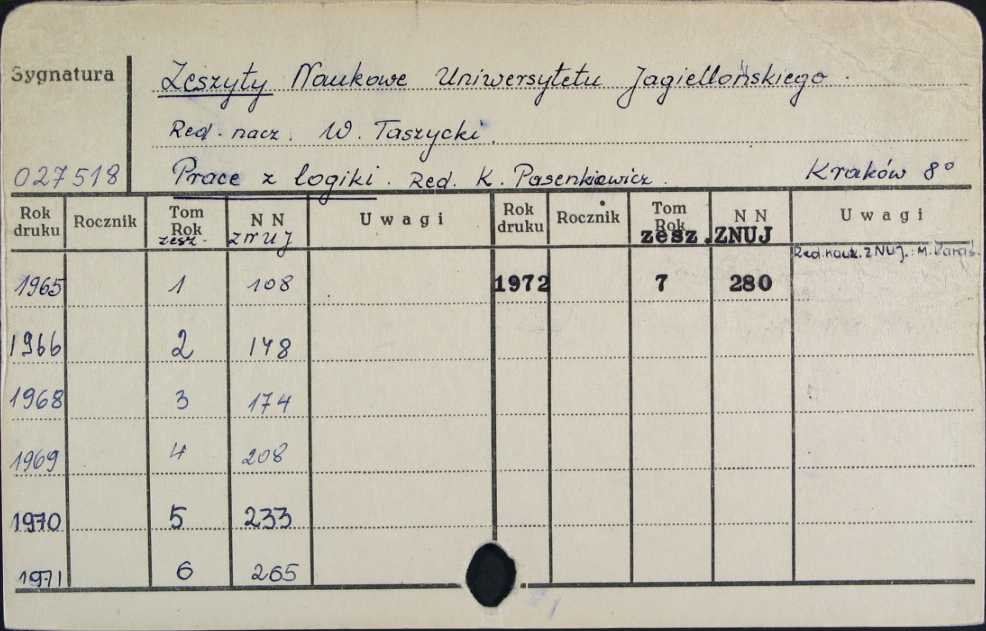 Sygnatura
Zeszyty Naukowe Uniwersytetu Jagiellońskiego.
Red. nacz. W. Taszycki.
027518
Prace z logiki. Red. K. Pasenkiewicz. Kraków 8°
Rok druku Rocznik Tom Rok zesz. NN ZNUJ Uwagi Rok druku Rocznik Tom Rok zesz. NN ZNUJ Uwagi
Red. nacz. ZNUJ.: M.
1965 1 108 1972 7 280
1966 2 148
1968 3 174
1969 4 208
1970 5 233
1971 6 265